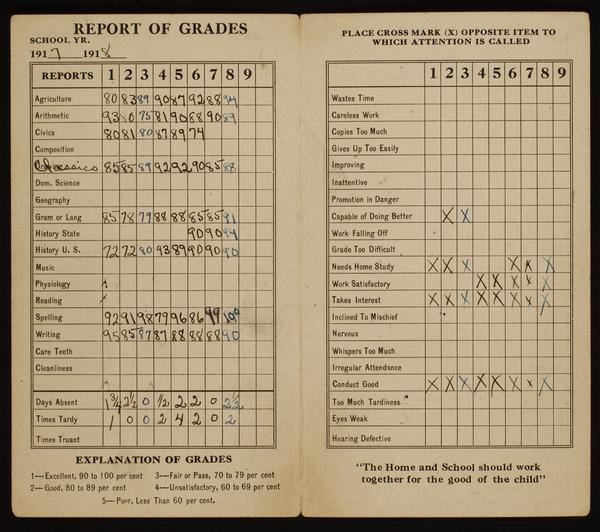 REPORT OF GRADES
SCHOOL YR.
1917 1918
REPORTS 1 2 3 4 5 6 7 8 9
Agriculture 80 83 89 90 87 92 88 94
Arithmetic 93 80 75 81 90 88 90 89
Civics 80 81 80 87 89 74
Composition
Classics 85 85 89 92 92 90 85 88
Dom. Science
Geography
Gram or Lang 85 78 79 88 88 85 85 91
History State 90 90 94
History U. S. 72 72 80 93 89 90 90 90
Music
Physiology
Reading
Spelling 92 91 98 79 96 86 99 100
Writing 95 85 87 87 88 88 88 90
Care Teeth
Cleanliness
Days Absent 1¾ 2½ 0 ½ 2 2 0 2½
Times Tardy 1 0 0 2 4 2 0 2
Times Truant
EXPLANATION OF GRADES
1—Excellent, 90 to 100 per cent 3—Fair or Pass, 70 to 79 per cent
2—Good, 80 to 89 per cent 4—Unsatisfactory, 60 to 69 per cent
5—Poor, Less Than 60 per cent.
PLACE CROSS MARK (X) OPPOSITE ITEM TO
WHICH ATTENTION IS CALLED
1 2 3 4 5 6 7 8 9
Wastes Time
Careless Work
Copies Too Much
Gives Up Too Easily
Improving
Inattentive
Promotion in Danger
Capable of Doing Better X X
Work Falling Off
Grade Too Difficult
Needs Home Study X X X X X X
Work Satisfactory X X X X X
Takes Interest X X X X X X X X
Inclined To Mischief
Nervous
Whispers Too Much
Irregular Attendance
Conduct Good X X X X X X X X
Too Much Tardiness
Eyes Weak
Hearing Defective
"The Home and School should work
together for the good of the child"